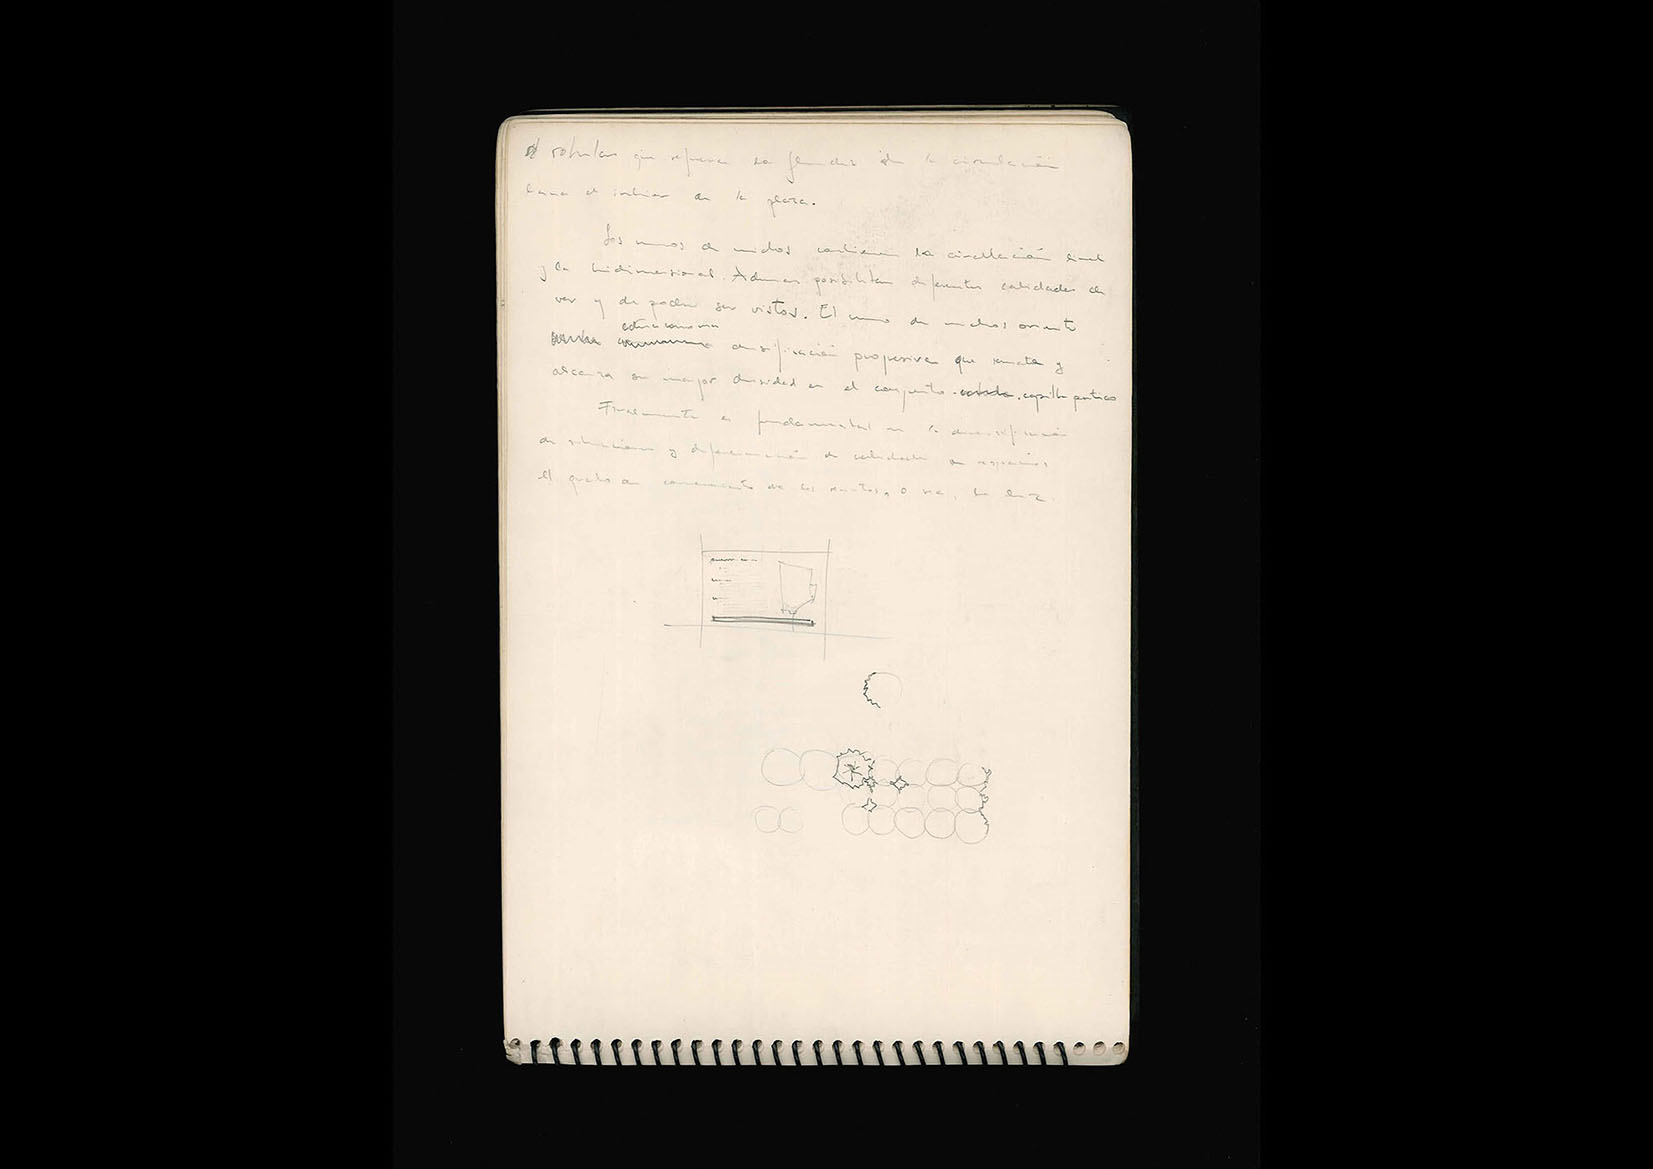 que refuerza la de la circulación
hacia el interior de la plaza.
Los muros de nichos contienen la circulación lineal
y la bidimensional. Ademas posibilitan diferentes calidades de
ver y de poder ser vistos. El muro de nichos
densificación progresiva que remata y
alcanza su mayor densidad en el conjunto capilla portico
Finalmente es fundamental en la diversificación
de situaciones y diferenciación de calidades de espacios
el grado de de los recintos, o sea, la luz.